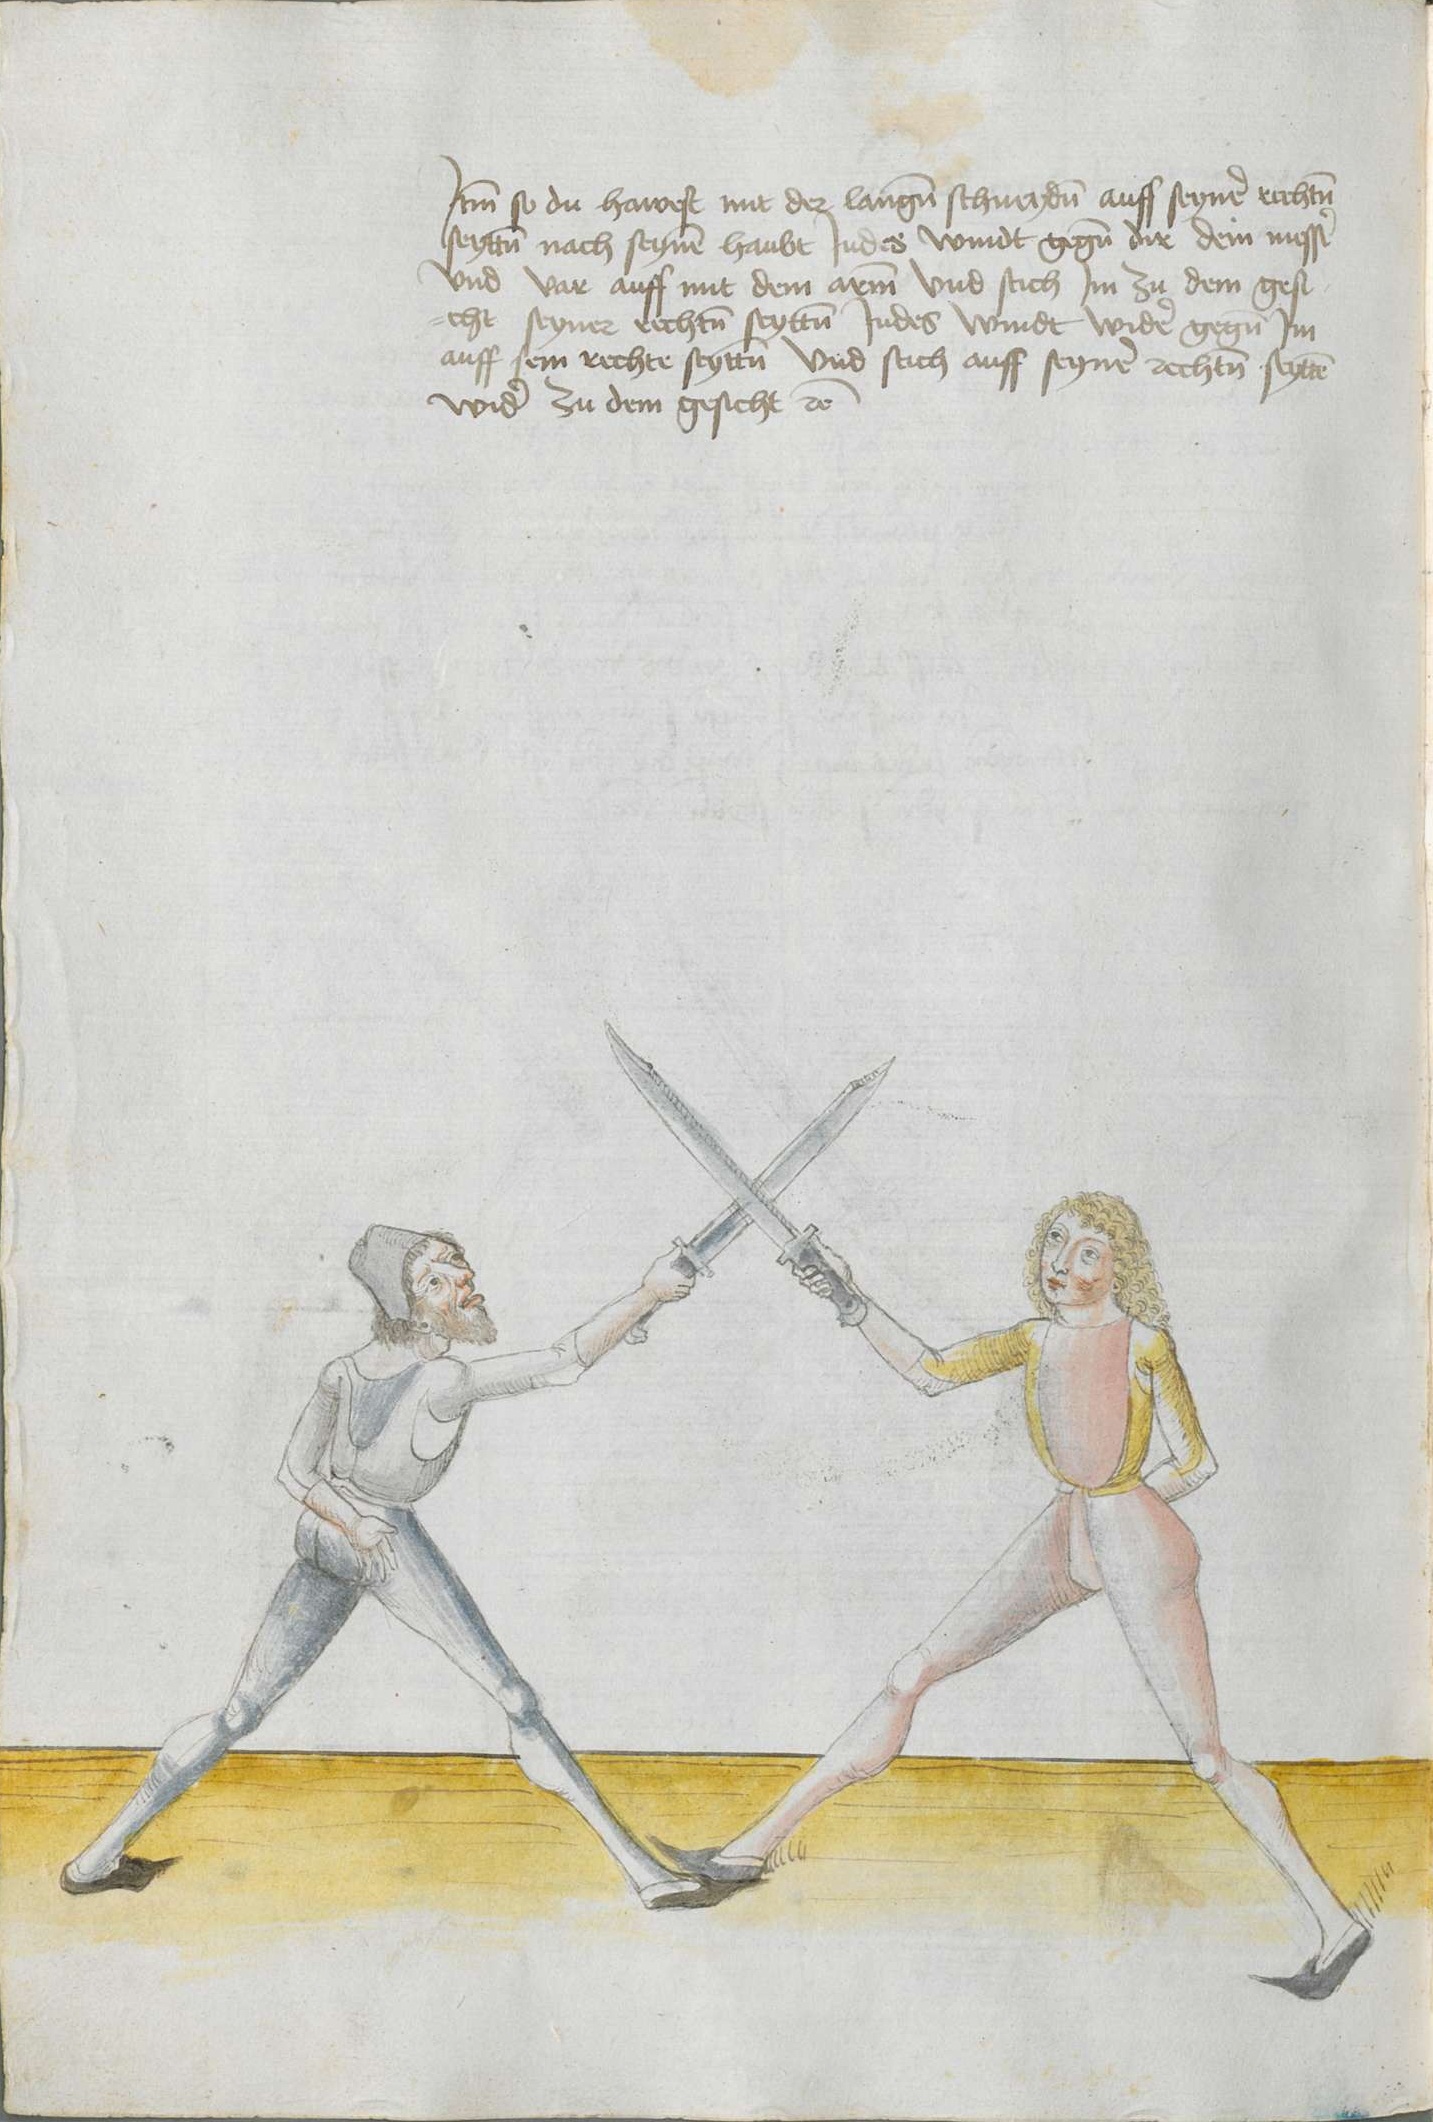 Itm̄ so du hawest mit der langn̄ schneydn̄ auff seyner̄ rechtn̄
seyttn̄ nach seynē haubt Indes windt gegn̄ dir dein messr̄
vnd var auff mit dem arm̄ vnd stich Im zu dem gesi
=cht seyner rechtn̄ seyttn̄ Indes windt wider̄ gegn̄ Im
auff sein rechte seyttn̄ vnd stich auff seyner̄ rechtn̄ seyttē
wider̄ zu dem gesicht rc̄